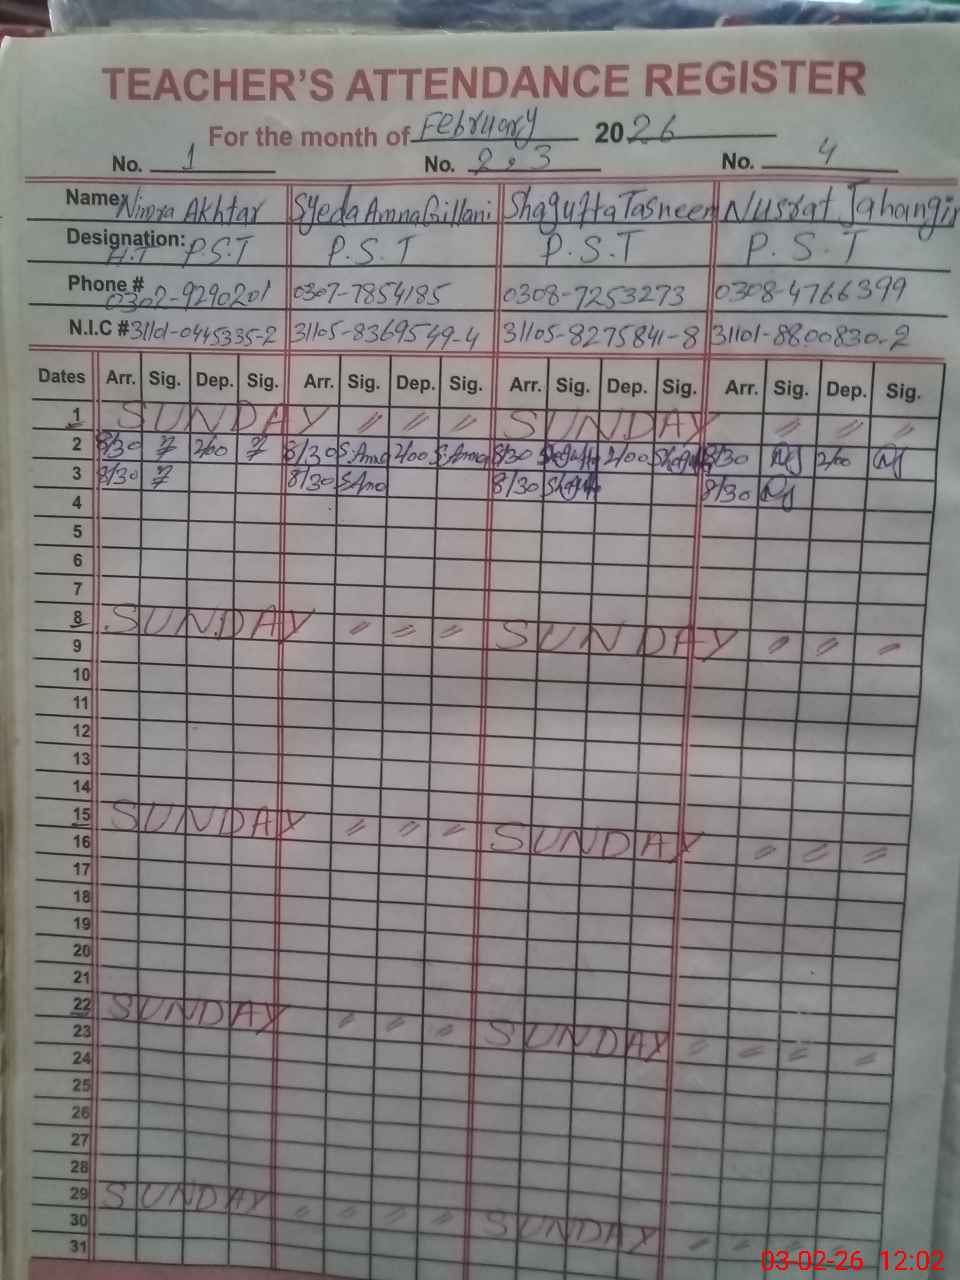 TEACHER'S ATTENDANCE REGISTER
For the month of February 2026
No. 1 No. 2,3 No. 4
Name: Nimra Akhtar Syeda Amna Gillani Shagufta Tasneem Nusrat Jahangir
Designation: H.T P.S.T P.S.T P.S.T P.S.T
Phone # 0302-9290201 0307-7854185 0308-7253273 0308-4766399
N.I.C # 31101-0445335-2 31105-8369549-4 31105-8275841-8 31101-8800830-2
Dates Arr. Sig. Dep. Sig. Arr. Sig. Dep. Sig. Arr. Sig. Dep. Sig. Arr. Sig. Dep. Sig.
1 SUNDAY 〃 〃 〃 SUNDAY 〃 〃 〃
2 8/30 2/00 8/30 S.Amna 2/00 S.Amna 8/30 2/00 8/30 2/00
3 8/30 8/30 8/30 8/30
4
5
6
7
8 SUNDAY 〃 〃 〃 SUNDAY 〃 〃 〃
9
10
11
12
13
14
15 SUNDAY 〃 〃 〃 SUNDAY 〃 〃 〃
16
17
18
19
20
21
22 SUNDAY 〃 〃 〃 SUNDAY 〃 〃 〃 〃
23
24
25
26
27
28
29 SUNDAY 〃 〃 〃 〃 SUNDAY 〃 〃 〃 〃
30
31
03-02-26 12:02